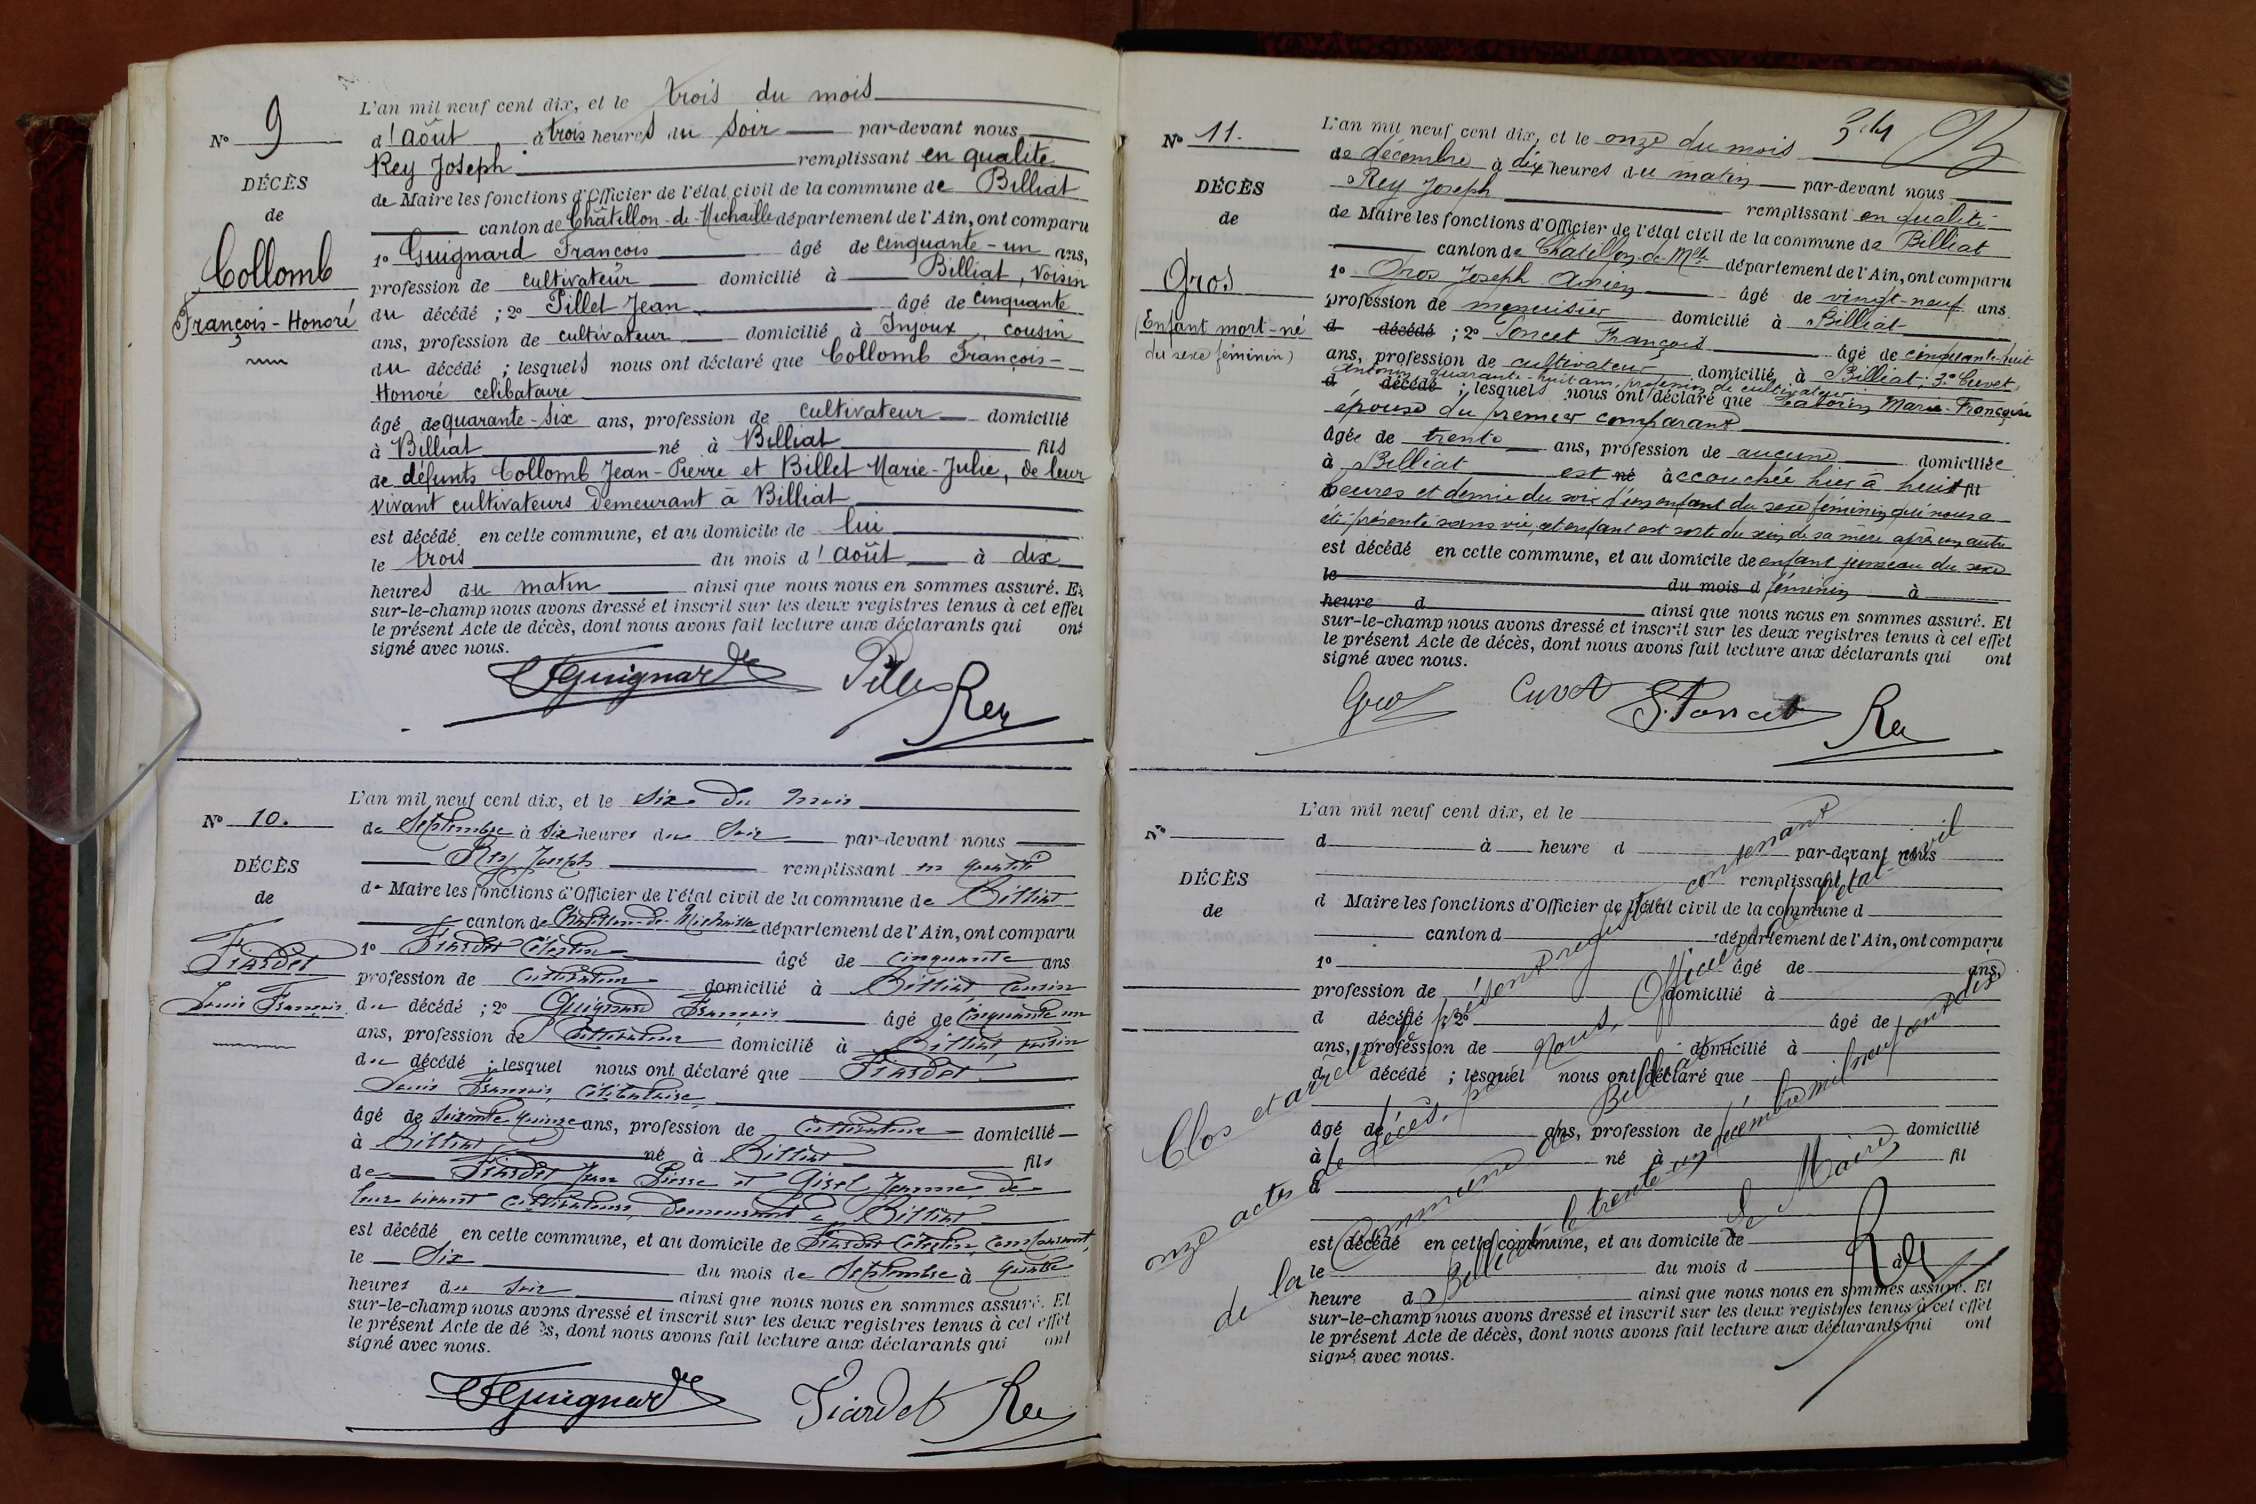 L'an mil neuf cent dix, et le trois du mois
N° 9
d'août à trois heures du soir par-devant nous
Rey Joseph remplissant en qualité
DÉCÈS
de Maire les fonctions d'Officier de l'état civil de la commune de Billiat
de
canton de Châtillon-de-Michaille département de l'Ain, ont comparu
Collomb
François-Honoré
1° Guignard François âgé de cinquante-un ans,
profession de cultivateur domicilié à Billiat, voisin
du décédé ; 2° Pillet Jean âgé de cinquante
ans, profession de cultivateur domicilié à Injoux, cousin
du décédé ; lesquels nous ont déclaré que Collomb François-
Honoré celibataire
âgé de quarante-six ans, profession de cultivateur domicilié
à Billiat né à Billiat fils
de défunts Collomb Jean-Pierre et Billet Marie-Julie, de leur
vivant cultivateurs demeurant à Billiat
est décédé en cette commune, et au domicile de lui
le trois du mois d'août à dix
heures du matin ainsi que nous nous en sommes assuré. Et
sur-le-champ nous avons dressé et inscrit sur les deux registres tenus à cet effet
le présent Acte de décès, dont nous avons fait lecture aux déclarants qui ont
signé avec nous.
Guignard Pillet Rey
L'an mil neuf cent dix, et le six du mois
N° 10.
de Septembre à six heures du soir par-devant nous
Rey Joseph remplissant en qualité
DÉCÈS
de Maire les fonctions d'Officier de l'état civil de la commune de Billiat
de
canton de Châtillon-de-Michaille département de l'Ain, ont comparu
Fiardet
Louis François
1° Fiardet Célestin âgé de cinquante ans
profession de cultivateur domicilié à Billiat cousin
du décédé ; 2° Guignard François âgé de cinquante un
ans, profession de cultivateur domicilié à Billiat, voisin
du décédé ; lesquel nous ont déclaré que Fiardet
Louis François, célibataire,
âgé de soixante quinze ans, profession de cultivateur domicilié
à Billiat né à Billiat fils
de Fiardet Jean Pierre et Gisel Jeanne, de
leur vivant cultivateurs, demeurant à Billiat
est décédé en cette commune, et au domicile de Fiardet Célestin, comparant,
le six du mois de Septembre à quatre
heures du soir ainsi que nous nous en sommes assuré. Et
sur-le-champ nous avons dressé et inscrit sur les deux registres tenus à cet effet
le présent Acte de décès, dont nous avons fait lecture aux déclarants qui ont
signé avec nous.
Guignard Fiardet Rey
L'an mil neuf cent dix, et le onze du mois
N° 11.
de décembre à dix heures du matin par-devant nous
Rey Joseph remplissant en qualité
DÉCÈS
de Maire les fonctions d'Officier de l'état civil de la commune de Billiat
de
canton de Châtillon-de-Mlle département de l'Ain, ont comparu
Gros
(Enfant mort-né
du sexe féminin)
1° Gros Joseph Adrien âgé de vingt-neuf ans
profession de menuisier domicilié à Billiat
d décédé ; 2° Poncet François âgé de cinquante-huit
ans, profession de cultivateur domicilié à Billiat ; 3° Cuvet
Antonin quarante-huit ans, profession de cultivateur
d décédé ; lesquels nous ont déclaré que Marie-Françoise
épouse du premier comparant
âgée de trente ans, profession de aucune domiciliée
à Billiat est né accouchée hier à huit fil
heures et demie du soir d'un enfant du sexe féminin qui nous a
été présenté sans vie, cet enfant est sorti du sein de sa mère après un autre
est décédé en cette commune, et au domicile de enfant jumeau du sexe
le du mois d féminin à
heure d ainsi que nous nous en sommes assuré. Et
sur-le-champ nous avons dressé et inscrit sur les deux registres tenus à cet effet
le présent Acte de décès, dont nous avons fait lecture aux déclarants qui ont
signé avec nous.
Gros Cuvet Poncet Rey
L'an mil neuf cent dix, et le
N°
d à heure d par-devant nous
remplissant
DÉCÈS
d Maire les fonctions d'Officier de l'état civil de la commune d
de
canton d département de l'Ain, ont comparu
1° âgé de ans,
profession de domicilié à
d décédé ; 2° âgé de
ans, profession de domicilié à
d décédé ; lesquel nous ont déclaré que
âgé de ans, profession de domicilié
à né à fil
d
est décédé en cette commune, et au domicile de
le du mois d à
heure d ainsi que nous nous en sommes assuré. Et
sur-le-champ nous avons dressé et inscrit sur les deux registres tenus à cet effet
le présent Acte de décès, dont nous avons fait lecture aux déclarants qui ont
signé avec nous.
Clos et arrêté le présent registre contenant
onze actes de décès, par Nous, Officier de l'état-civil
de la Commune de Billiat
Billiat le trente un décembre mil neuf cent dix
Le Maire,
Rey